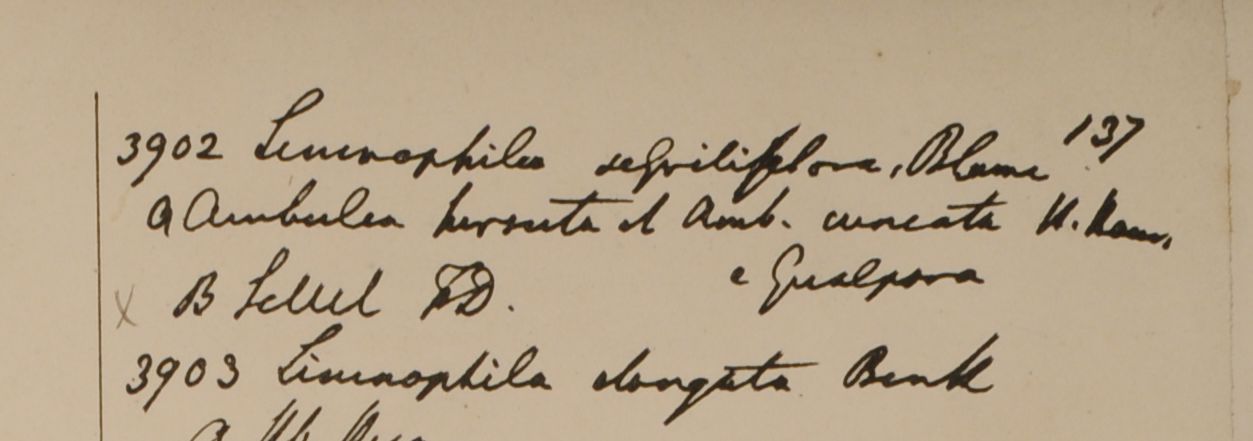 137
3902 Limnophila sessiliflora, Blume
a Ambulea hirsuta et Amb. cuneata H. Ham.
e Gualpara
B Sillet FD.
3903 Limnophila elongata Benth
a Hb.